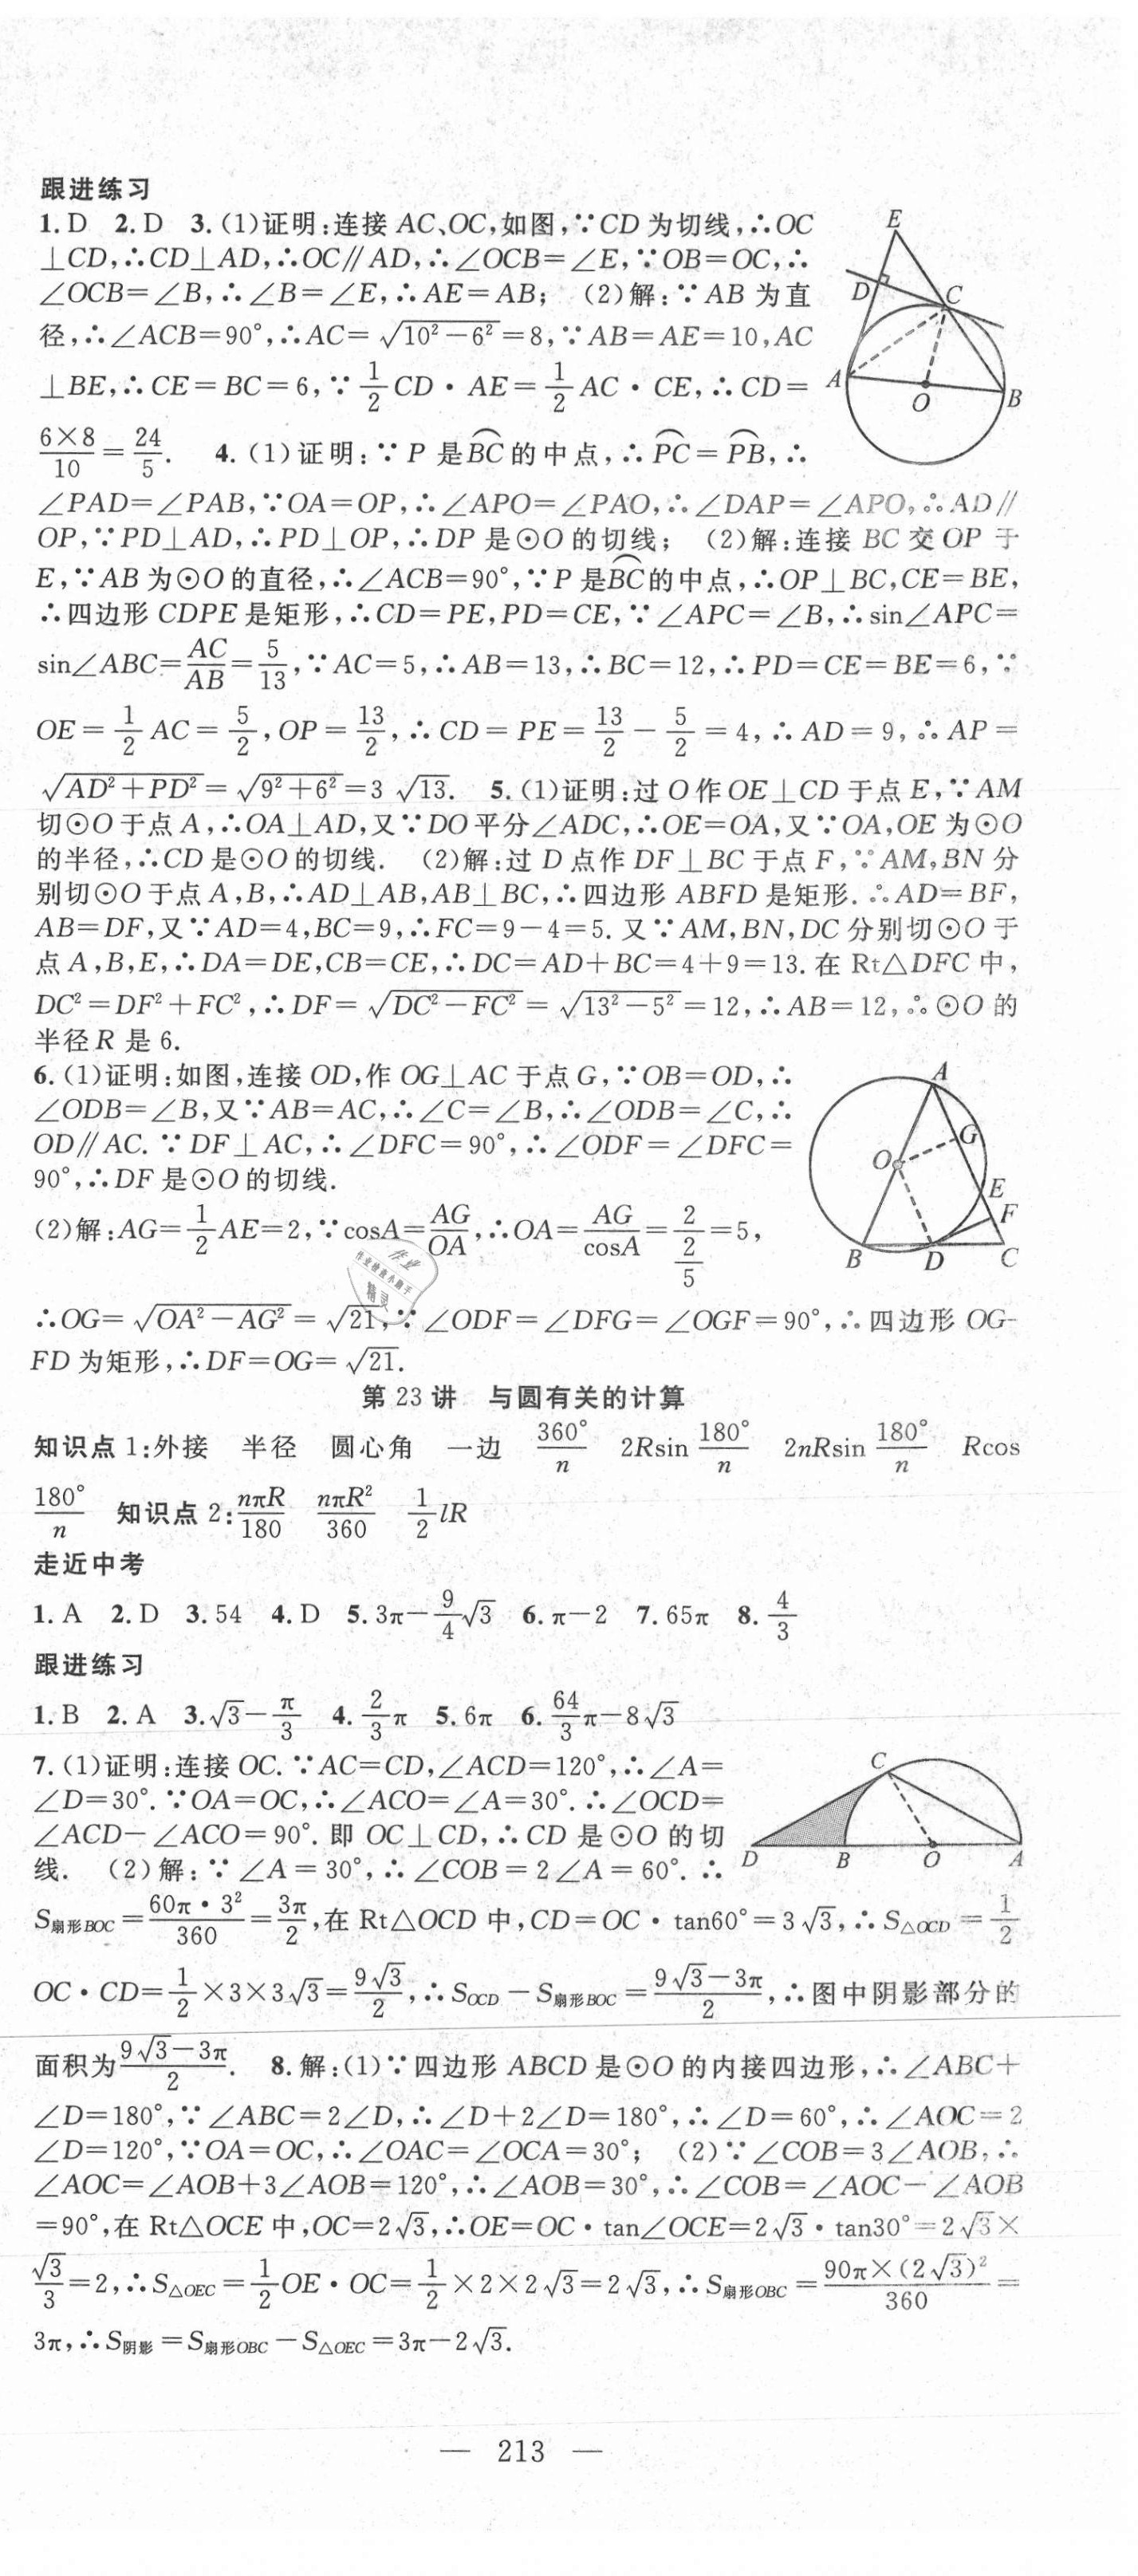 跟进练习
1. D 2. D 3. (1)证明:连接 AC、OC,如图,∵CD 为切线,∴OC
⊥CD,∴CD⊥AD,∴OC∥AD,∴∠OCB=∠E,∵OB=OC,∴
∠OCB=∠B,∴∠B=∠E,∴AE=AB; (2)解:∵AB 为直
径,∴∠ACB=90°,∴AC=√(10²-6²)=8,∵AB=AE=10,AC
⊥BE,∴CE=BC=6,∵1/2 CD·AE=1/2 AC·CE,∴CD=
(6×8)/10=24/5. 4. (1)证明:∵P 是⌒BC的中点,∴⌒PC=⌒PB,∴
∠PAD=∠PAB,∵OA=OP,∴∠APO=∠PAO,∴∠DAP=∠APO,∴AD∥
OP,∵PD⊥AD,∴PD⊥OP,∴DP 是⊙O 的切线; (2)解:连接 BC 交 OP 于
E,∵AB 为⊙O 的直径,∴∠ACB=90°,∵P 是⌒BC的中点,∴OP⊥BC,CE=BE,
∴四边形 CDPE 是矩形,∴CD=PE,PD=CE,∵∠APC=∠B,∴sin∠APC=
sin∠ABC=AC/AB=5/13,∵AC=5,∴AB=13,∴BC=12,∴PD=CE=BE=6,∵
OE=1/2 AC=5/2,OP=13/2,∴CD=PE=13/2-5/2=4,∴AD=9,∴AP=
√(AD²+PD²)=√(9²+6²)=3√13. 5. (1)证明:过 O 作 OE⊥CD 于点 E,∵AM
切⊙O 于点 A,∴OA⊥AD,又∵DO 平分∠ADC,∴OE=OA,又∵OA,OE 为⊙O
的半径,∴CD 是⊙O 的切线. (2)解:过 D 点作 DF⊥BC 于点 F,∵AM,BN 分
别切⊙O 于点 A,B,∴AD⊥AB,AB⊥BC,∴四边形 ABFD 是矩形. ∴AD=BF,
AB=DF,又∵AD=4,BC=9,∴FC=9-4=5. 又∵AM,BN,DC 分别切⊙O 于
点 A,B,E,∴DA=DE,CB=CE,∴DC=AD+BC=4+9=13. 在 Rt△DFC 中,
DC²=DF²+FC²,∴DF=√(DC²-FC²)=√(13²-5²)=12,∴AB=12,∴⊙O 的
半径 R 是 6.
6. (1)证明:如图,连接 OD,作 OG⊥AC 于点 G,∵OB=OD,∴
∠ODB=∠B,又∵AB=AC,∴∠C=∠B,∴∠ODB=∠C,∴
OD∥AC. ∵DF⊥AC,∴∠DFC=90°,∴∠ODF=∠DFC=
90°,∴DF 是⊙O 的切线.
(2)解:AG=1/2 AE=2,∵cosA=AG/OA,∴OA=AG/cosA=2/(2/5)=5,
∴OG=√(OA²-AG²)=√21,∵∠ODF=∠DFG=∠OGF=90°,∴四边形 OG-
FD 为矩形,∴DF=OG=√21.
第 23 讲 与圆有关的计算
知识点 1:外接 半径 圆心角 一边 360°/n 2Rsin 180°/n 2nRsin 180°/n Rcos
180°/n 知识点 2:nπR/180 nπR²/360 1/2 lR
走近中考
1. A 2. D 3. 54 4. D 5. 3π-9/4√3 6. π-2 7. 65π 8. 4/3
跟进练习
1. B 2. A 3. √3-π/3 4. 2/3π 5. 6π 6. 64/3π-8√3
7. (1)证明:连接 OC. ∵AC=CD,∠ACD=120°,∴∠A=
∠D=30°. ∵OA=OC,∴∠ACO=∠A=30°. ∴∠OCD=
∠ACD-∠ACO=90°. 即 OC⊥CD,∴CD 是⊙O 的切
线. (2)解:∵∠A=30°,∴∠COB=2∠A=60°. ∴
S扇形BOC=(60π·3²)/360=3π/2,在 Rt△OCD 中,CD=OC·tan60°=3√3,∴S△OCD=1/2
OC·CD=1/2×3×3√3=9√3/2,∴SOCD-S扇形BOC=(9√3-3π)/2,∴图中阴影部分的
面积为(9√3-3π)/2. 8. 解:(1)∵四边形 ABCD 是⊙O 的内接四边形,∴∠ABC+
∠D=180°,∵∠ABC=2∠D,∴∠D+2∠D=180°,∴∠D=60°,∴∠AOC=2
∠D=120°,∵OA=OC,∴∠OAC=∠OCA=30°; (2)∵∠COB=3∠AOB,∴
∠AOC=∠AOB+3∠AOB=120°,∴∠AOB=30°,∴∠COB=∠AOC-∠AOB
=90°,在 Rt△OCE 中,OC=2√3,∴OE=OC·tan∠OCE=2√3·tan30°=2√3×
√3/3=2,∴S△OEC=1/2 OE·OC=1/2×2×2√3=2√3,∴S扇形OBC=(90π×(2√3)²)/360=
3π,∴S阴影=S扇形OBC-S△OEC=3π-2√3.
— 213 —
E
D
C
A
O
B
A
G
O
E
F
B
D
C
C
D
B
O
A
作业
作业检查小助手
精灵